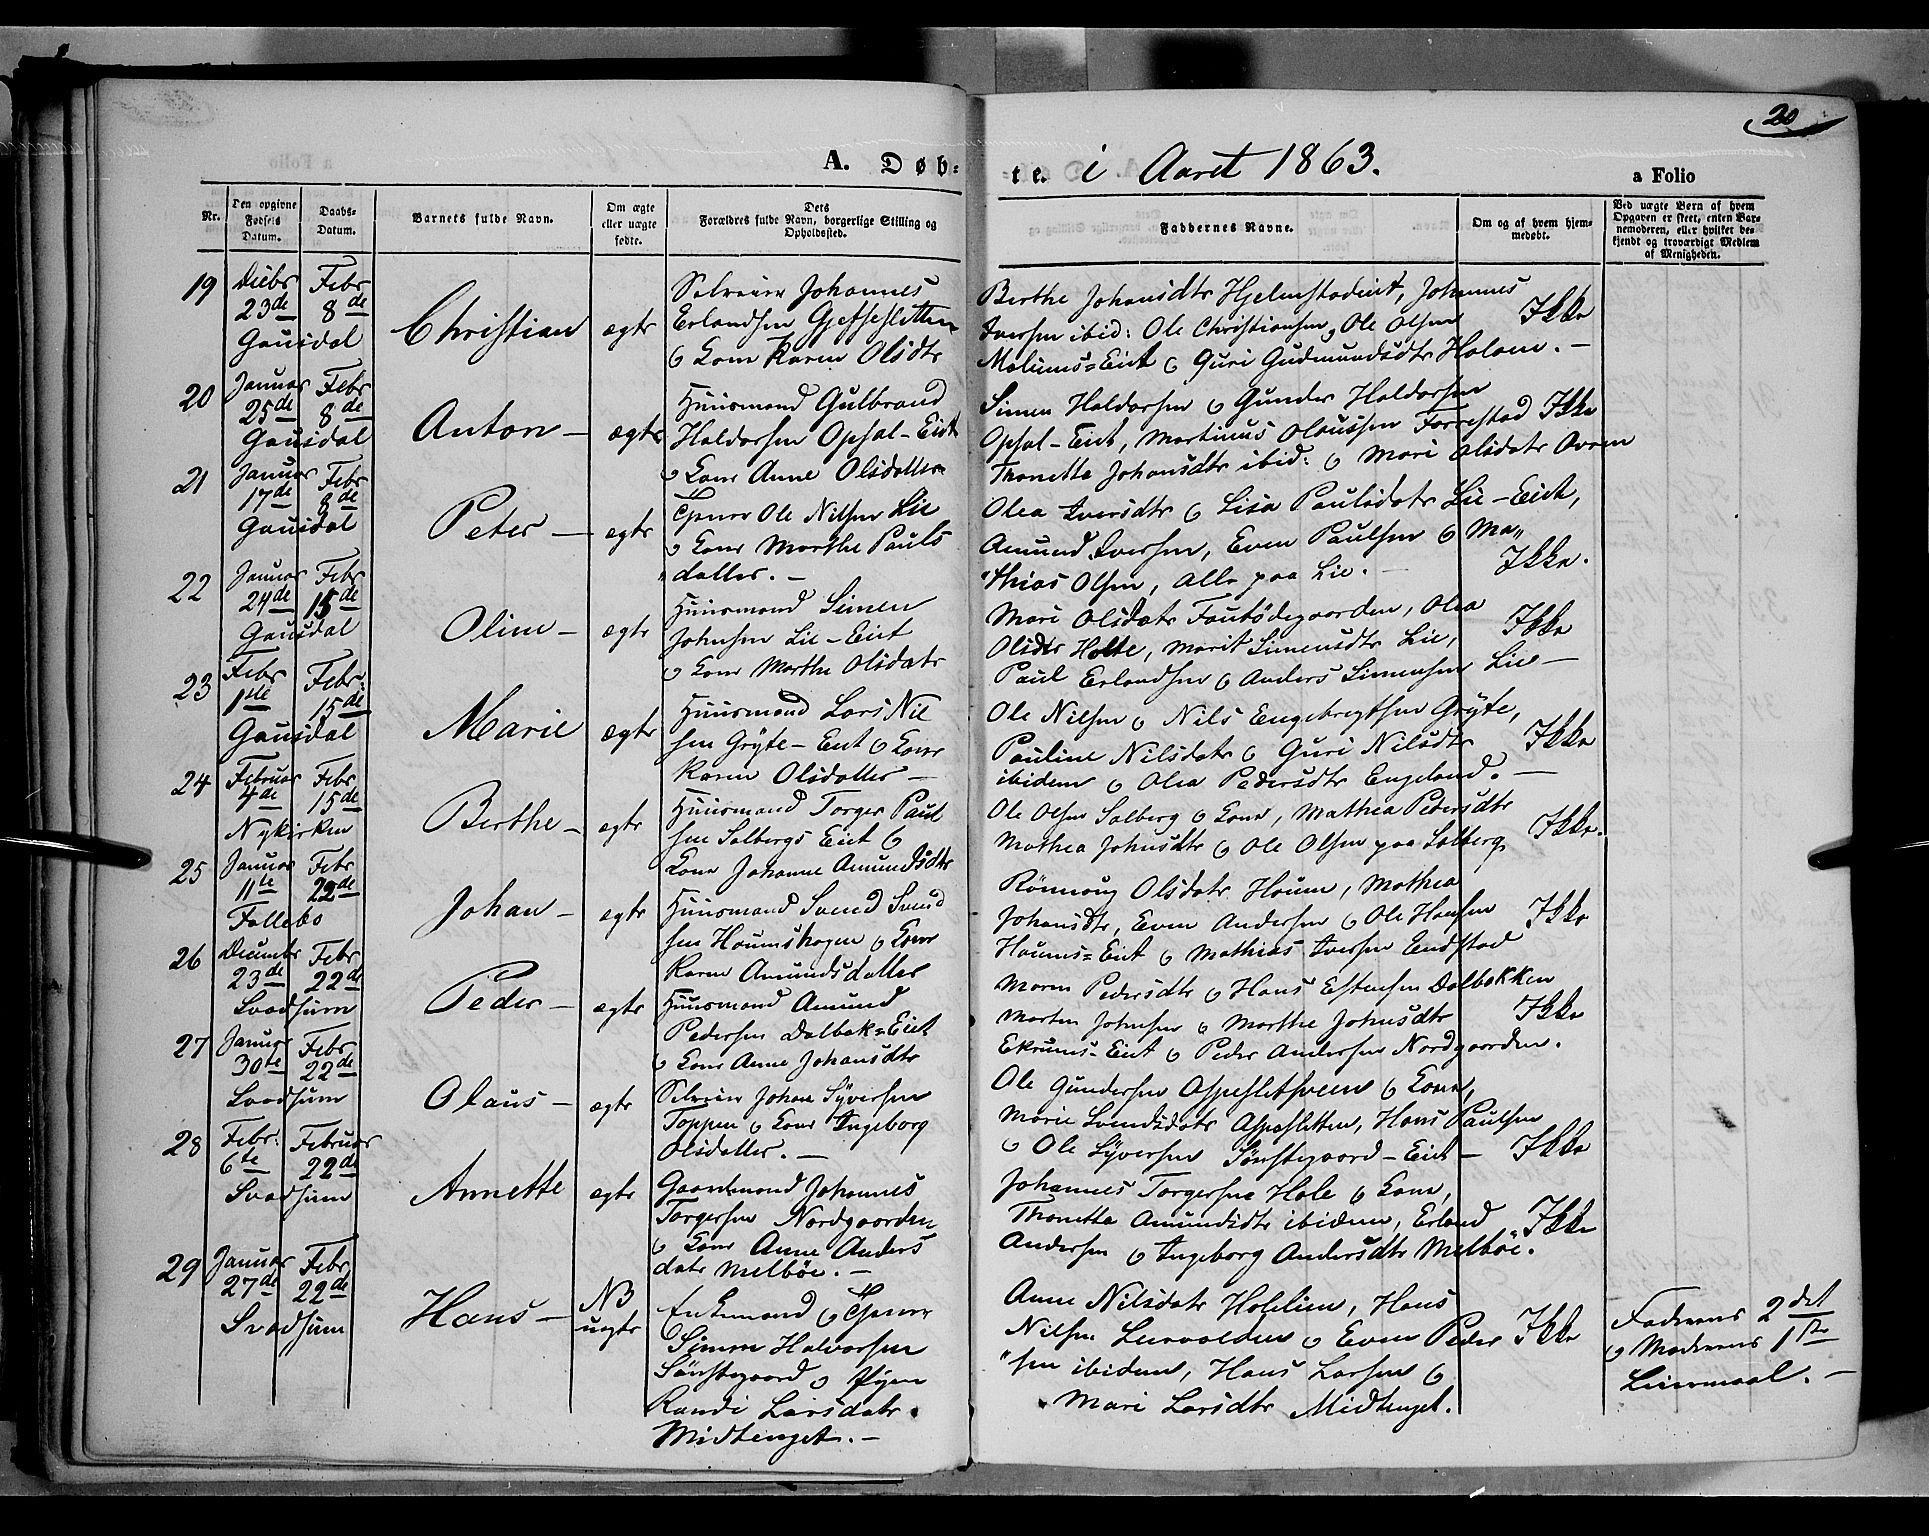 20
A. Døb-
te. i Aaret 1863.
a Folio
Nr.
Den opgivne Fødsels Datum.
Daabs-Datum.
Barnets fulde Navn.
Om ægte eller uægte fødte.
Dets Forældres fulde Navn, borgerlige Stilling og Opholdssted.
Faddernes Navne.
Om og af hvem hjemmedøbt.
Ved uægte Børn af hvem Opgaven er skeet, enten Barnemoderen, eller hvilket bekjendt og troværdigt Medlem af Menigheden.
19
Decbr 23de Febr 8de
Gausdal
Christian
ægte
Selveier Johannes
Erlandsen Gjefsesletten
o Kone Karen Olsdtr
Berthe Johansdtr Hjelmstadeiet, Johannes
Iversen ibid: Ole Christiansen, Ole Olsen
Moliums=Eiet o Guri Gudmundsdtr Holoen. –
Ikke
20
Januar 25de Febr 8de
Gausdal
Anton –
ægte
Huusmand Gulbrand
Haldorsen Opsal-Eiet
o Kone Anne Olsdatter
Simen Haldorsen o Gunder Haldorsen
Opsal-Eiet, Martinus Olaussen Forrestad
Thonette Johansdtr ibid: o Mari Olsdatr
Ikke
21
Januar 17de Febr 8de
Gausdal
Peter –
ægte
Ole Nilsen Lie
o Kone Marthe Pauls
datter. –
Olea Iversdtr o Lisa Paulsdatr Lie-Eiet,
Amund Iversen, Even Paulsen o Ma„
„thias Olsen, Alle paa Lie. –
Ikke.
22
Januar 24de Febr 15de
Gausdal
Oline –
ægte
Huusmand Simen
Johnsen Lie-Eiet
o Kone Marthe Olsdatr
Mari Olsdatr Fautödegaarden, Olea
Olsdtr Holte, Marit Simensdtr Lie,
Paul Erlandsen o Anders Simensen Lie –
Ikke
23
Febr 1ste Febr. 15de
Gausdal
Marie
ægte
Huusmand Lars Nil
sen Gryte-Eiet o Kone
Karen Olsdatter –
Ole Nilsen o Nils Engebregtsen Gryte,
Pauline Nilsdatr o Guri Nilsdtr
ibidem o Olea Pedersdtr Engeland. –
Ikke
24
Februar 4de Febr 15de
Nykirken
Berthe –
ægte
Huusmand Torger Paul
sen Solbergs Eiet o
Kone Johanne Amundsdtr
Ole Olsen Solberg o Kone, Mathea Pedersdtr
Mathea Johnsdtr o Ole Olsen paa Solberg.
Ikke.
25
Januar 11te Febr 22de
Follebo
Johan –
ægte
Huusmand Svend Svend
sen Houmshagen o Kone
Karen Amundsdatter
Rönnoug Olsdatr Houm, Mathea
Johansdtr, Even Andersen o Ole Hansen
Houms=Eiet o Mathias Iversen Endstad
Ikke
26
Decembr 23de Febr 22de
Svadsum
Peder –
ægte
Huusmand Amund
Pedersen Dalbak=Eiet
o Kone Anne Johansdtr
Maren Pedersdtr o Hans Estensen Dalbakken
Morten Johnsen o Marthe Johnsdtr
Ekrums-Eiet o Peder Andersen Nordgaarden.
Ikke
27
Januar 30te Febr 22de
Svadsum
Olaus –
ægte
Selveier Johan Syversen
Toppen o Kone Ingeborg
Olsdatter. –
Ole Gundersen Aspesletsveen o Kone,
Marie Svendsdatr Aspesletten, Hans Paulsen
o Ole Syversen Sönstegaard-Eiet –
Ikke
28
Febr: 6te Februar 22de
Svadsum
Annette
ægte
Gaardmand Johannes
Torgersen Nordgaarden
o Kone Anne Anders
datr Melböe. –
Johannes Torgersen Hole o Kone,
Thonette Amundsdtr ibidem, Erland
Andersen o Ingeborg Andersdtr Melböe.
Ikke
29
Januar 27de Febr. 22de
Svadsum
Hans –
NB uægte
Enkemand o
Simen Halvorsen
Sönstegaard o Pigen
Randi Larsdatr.
Midtenget. –
Anne Nilsdatr Holslien, Hans
Nilsen o Even Peder
„sen ibidem, Hans Larsen o
Mari Larsdtr Midtenget.
Ikke
Faderens 2det
o Moderens 1ste
Leiermaal. –